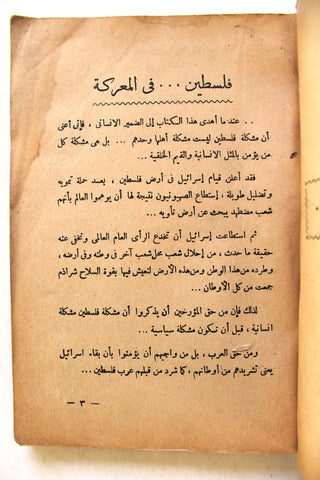 فلسطين ... فى المعركة
. . عندما أهدى هذا الكتاب إلى الضمير الانسانى ، فإنى أعنى
أن مشكلة فلسطين ليست مشكلة أهلها وحدهم ... بل هى مشكلة كل
من يؤمن بالمثل الانسانية والقيم الخلقية ...
فقد أعلن قيام إسرائيل فى أرض فلسطين ، بعد حملة تمويه
وتضليل طويلة ، إستطاع الصهيونيون نتيجة لها أن يوهموا العالم بأنهم
شعب مضطهد يبحث عن أرض تأويه ...
ثم استطاعت إسرائيل أن تخدع الرأى العام العالمى وتخفى عنه
حقيقة ما حدث ، من إحلال شعب محل شعب آخر فى وطنه وفى أرضه ،
وطرده من هذا الوطن ومن هذه الأرض لتعيش فيها بقوة السلاح شراذم
جمعت من كل الأوطان ...
لذلك فإن من حق المؤرخين أن يذكروا أن مشكلة فلسطين مشكلة
انسانية ، قبل أن تكون مشكلة سياسية ...
ومن حق العرب ، بل من واجبهم أن يؤمنوا بأن بقاء اسرائيل
يعنى تشريدهم من أوطانهم ، كما شرد من قبلهم عرب فلسطين ...
— ٣ —